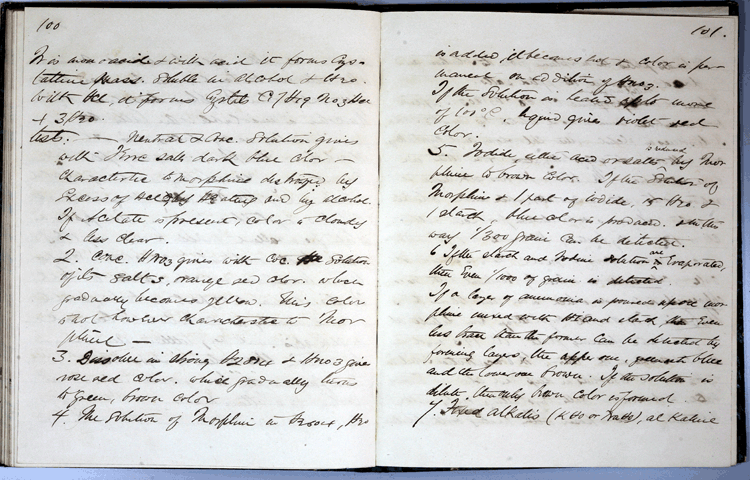 100
It is mono-acid & with acid it forms Crys-
talline mass. Soluble in alcohol & H2O.
With HCl, it forms Crystal C17H19NO3HCl
+ 3 H2O
test. — Neutral & Conc. Solution gives
with Ferric salts dark blue color —
characteristic to morphine destroyed by
Excess of acid, by Heating and by alcohol.
If Acetate is present, color is cloudy
& less clear.
2. Conc. HNO3 gives with Conc. Solution
of its salts, orange red color. which
gradually becomes yellow. This color
is not however characteristic to Mor
phine —
3. Dissolve in strong H2SO4 & HNO3 give
rose red color. which gradually turns
to green, brown color
4. The Solution of Morphine in H2SO4, H2O
101.
is added, it becomes hot & color is per-
manent on addition of HNO3.
If the Solution is heated up to more
of 100°C, liquid gives violet red
color.
5. Iodide, acid or salts is reduced by Mor
phine to brown color. If the Solution of
Morphine & 1 part of iodide, 15 H2O &
1 starch, blue color is produced. In this
way 1/200 grain can be detected.
6 If the starch and Iodine solution are Evaporated,
then Even 1/1000 of grain is detected.
If a layer of ammonia is poured upon mor
phine mixed with and starch, then Even
less than the former Can be detected by
forming layers, the upper one, blue
and the lower one brown. If the solution is
dilute, then only brown color is formed
7. Fixed alkalis (KHO or NaHO), alkaline